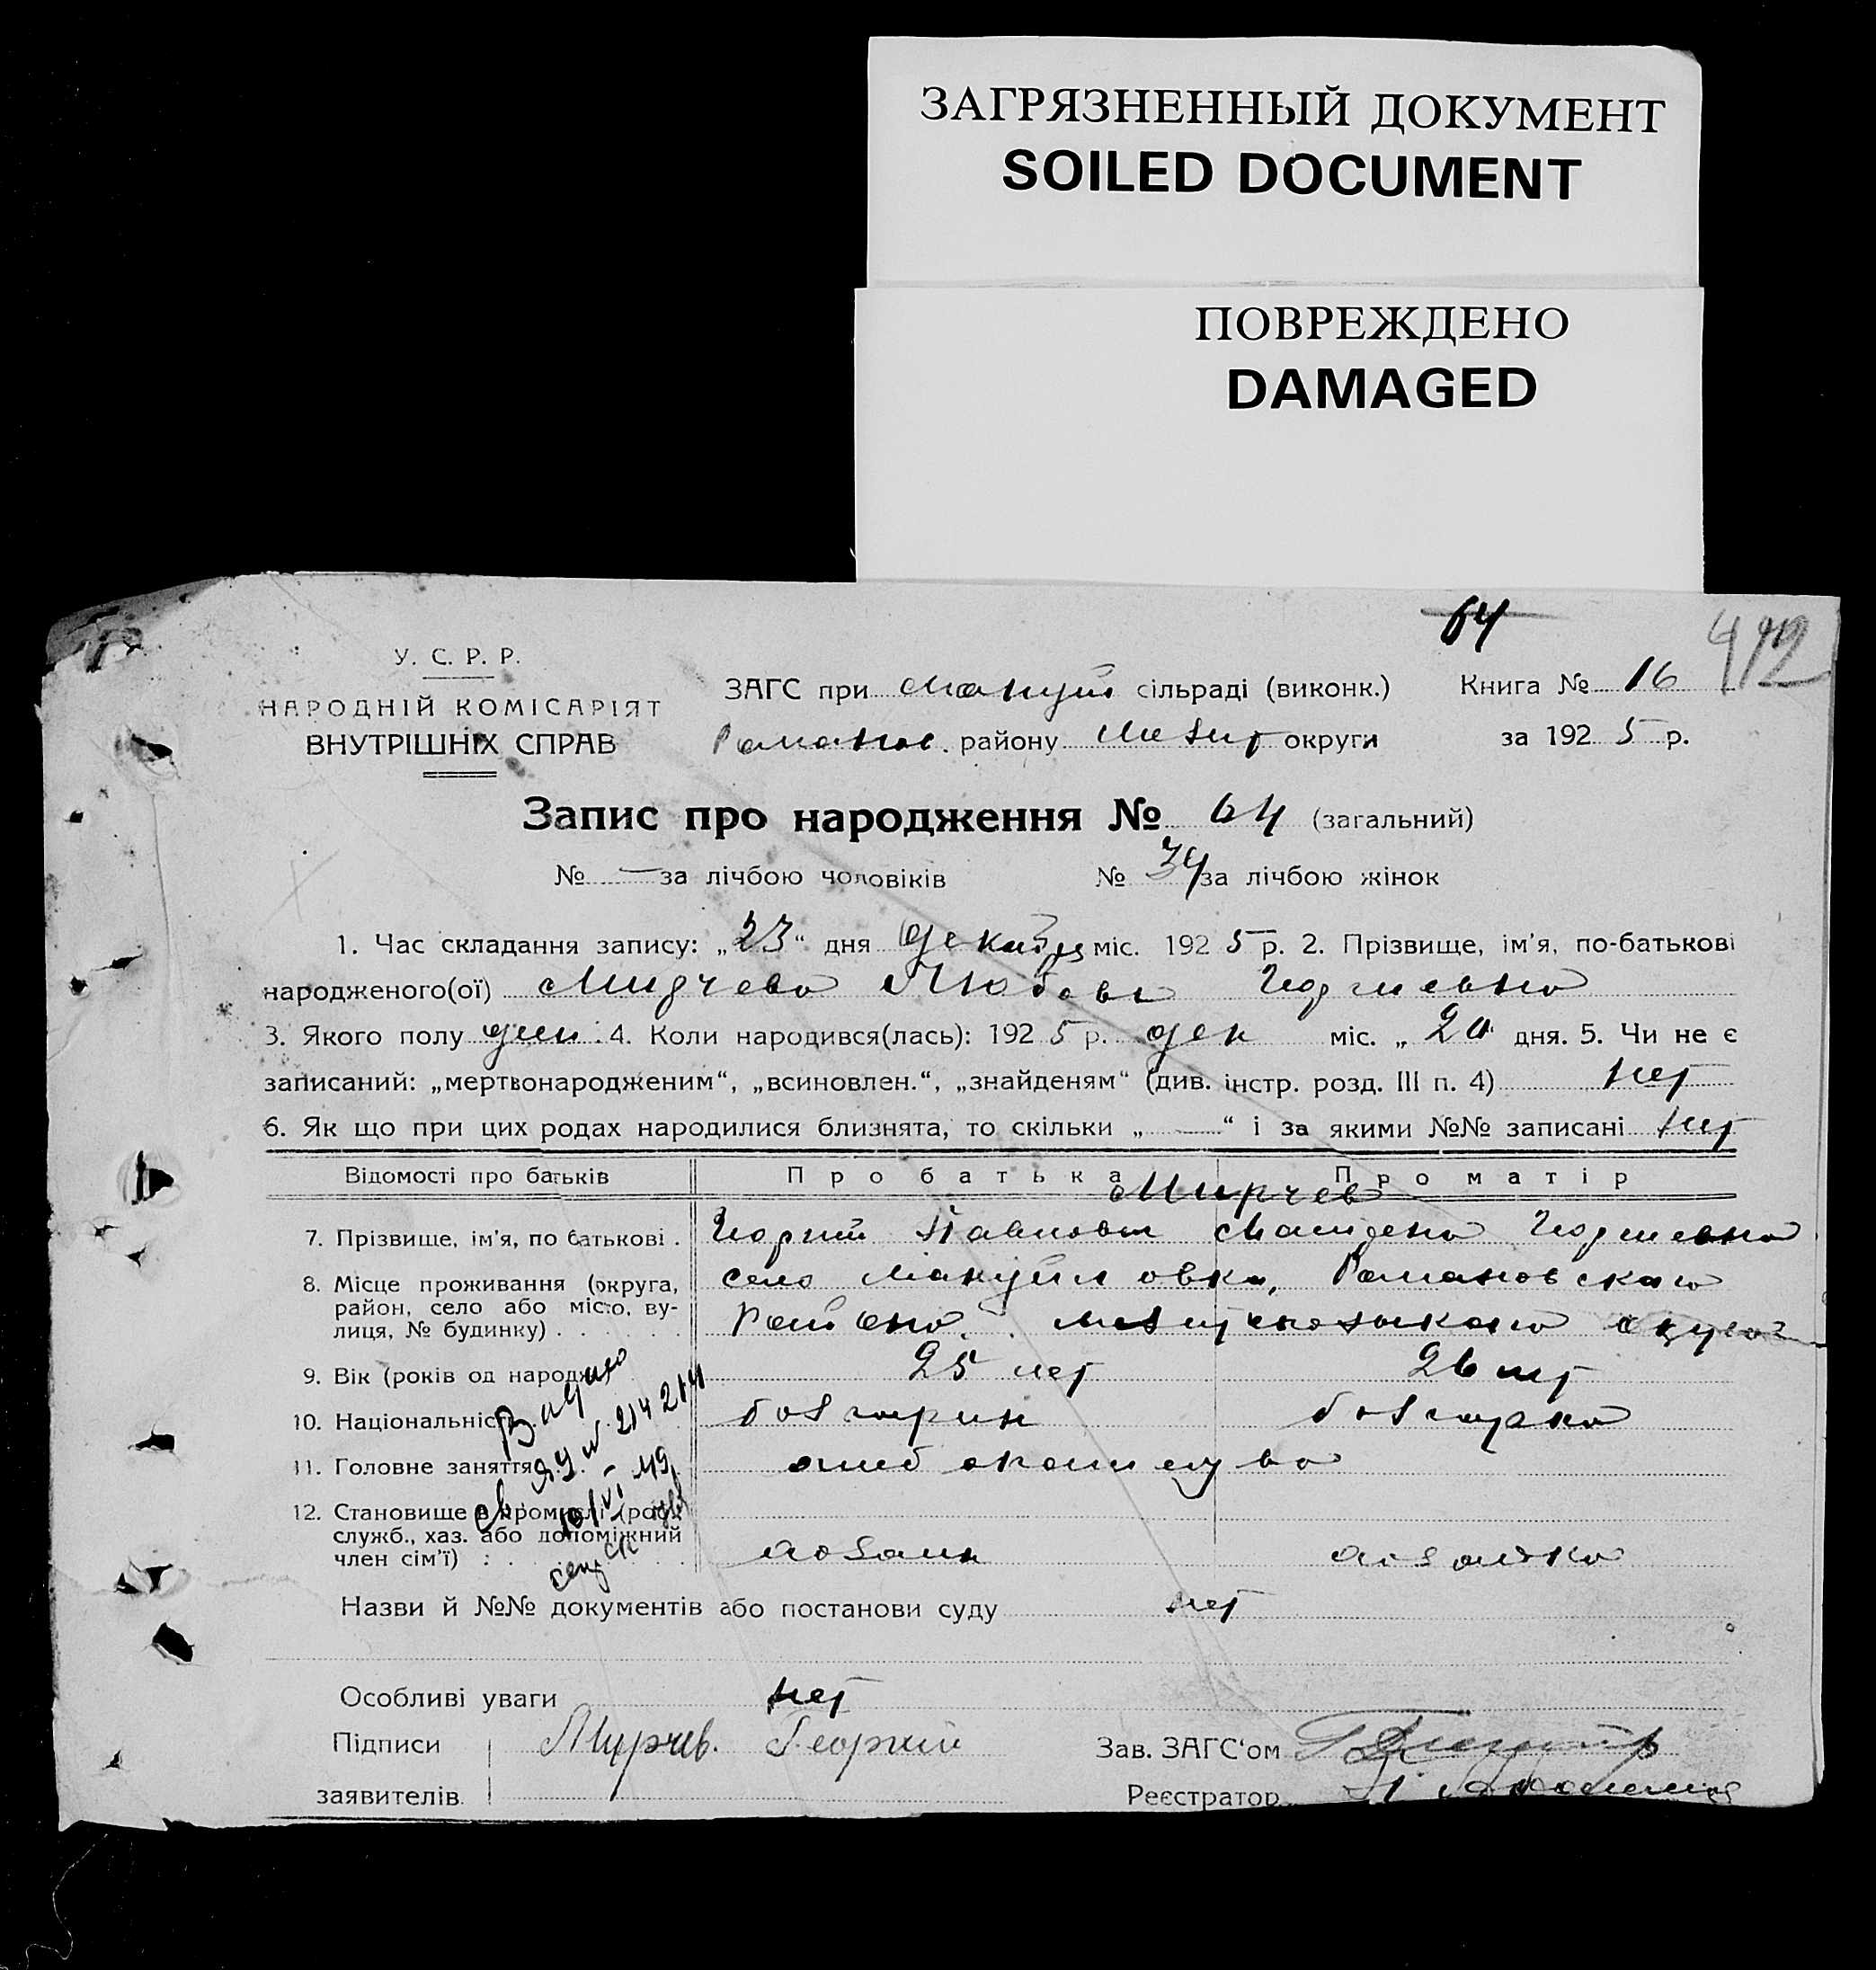 ЗАГРЯЗНЕННЫЙ ДОКУМЕНТ
SOILED DOCUMENT
ПОВРЕЖДЕНО
DAMAGED
64
412
У. С. Р. Р.
НАРОДНІЙ КОМІСАРІЯТ
ВНУТРІШНІХ СПРАВ
ЗАГС при Мануил сільраді (виконк.)
Книга № 16
Романов. району Мелит округи
за 1925 р.
Запис про народження № 64 (загальний)
№ — за лічбою чоловіків № 34 за лічбою жінок
1. Час складання запису: „23“ дня декабря міс. 1925 р. 2. Прізвище, ім'я, по-батькові
народженого(ої) Мирчева Любовь Георгиевна
3. Якого полу жен. 4. Коли народився(лась): 1925 р. дек міс. „20“ дня. 5. Чи не є
записаний: „мертвонародженим“, „всиновлен.“, „знайденям“ (див. інстр. розд. III п. 4) нет
6. Як що при цих родах народилися близнята, то скільки „—“ і за якими №№ записані нет
Відомості про батьків Про батька Про матір
Мирчев
7. Прізвище, ім'я, по батькові . Георгий Павлович Георгиевна
8. Місце проживання (округа, район, село або місто, вулиця, № будинку) . село Мануйловка, Романовского
района
9. Вік (років од народж.) 25 лет 26 лет
10. Національність болгарин болгарка
11. Головне заняття хлебопашество
12. Становище в промислі (роб., служб., хаз. або допоміжний член сім'ї) : хозяин хозяйка
Выдано
св. 214214
Назви й №№ документів або постанови суду нет
Особливі уваги нет
Підписи Мирчев. Георгий
Зав. ЗАГС'ом
заявителів
Реєстратор